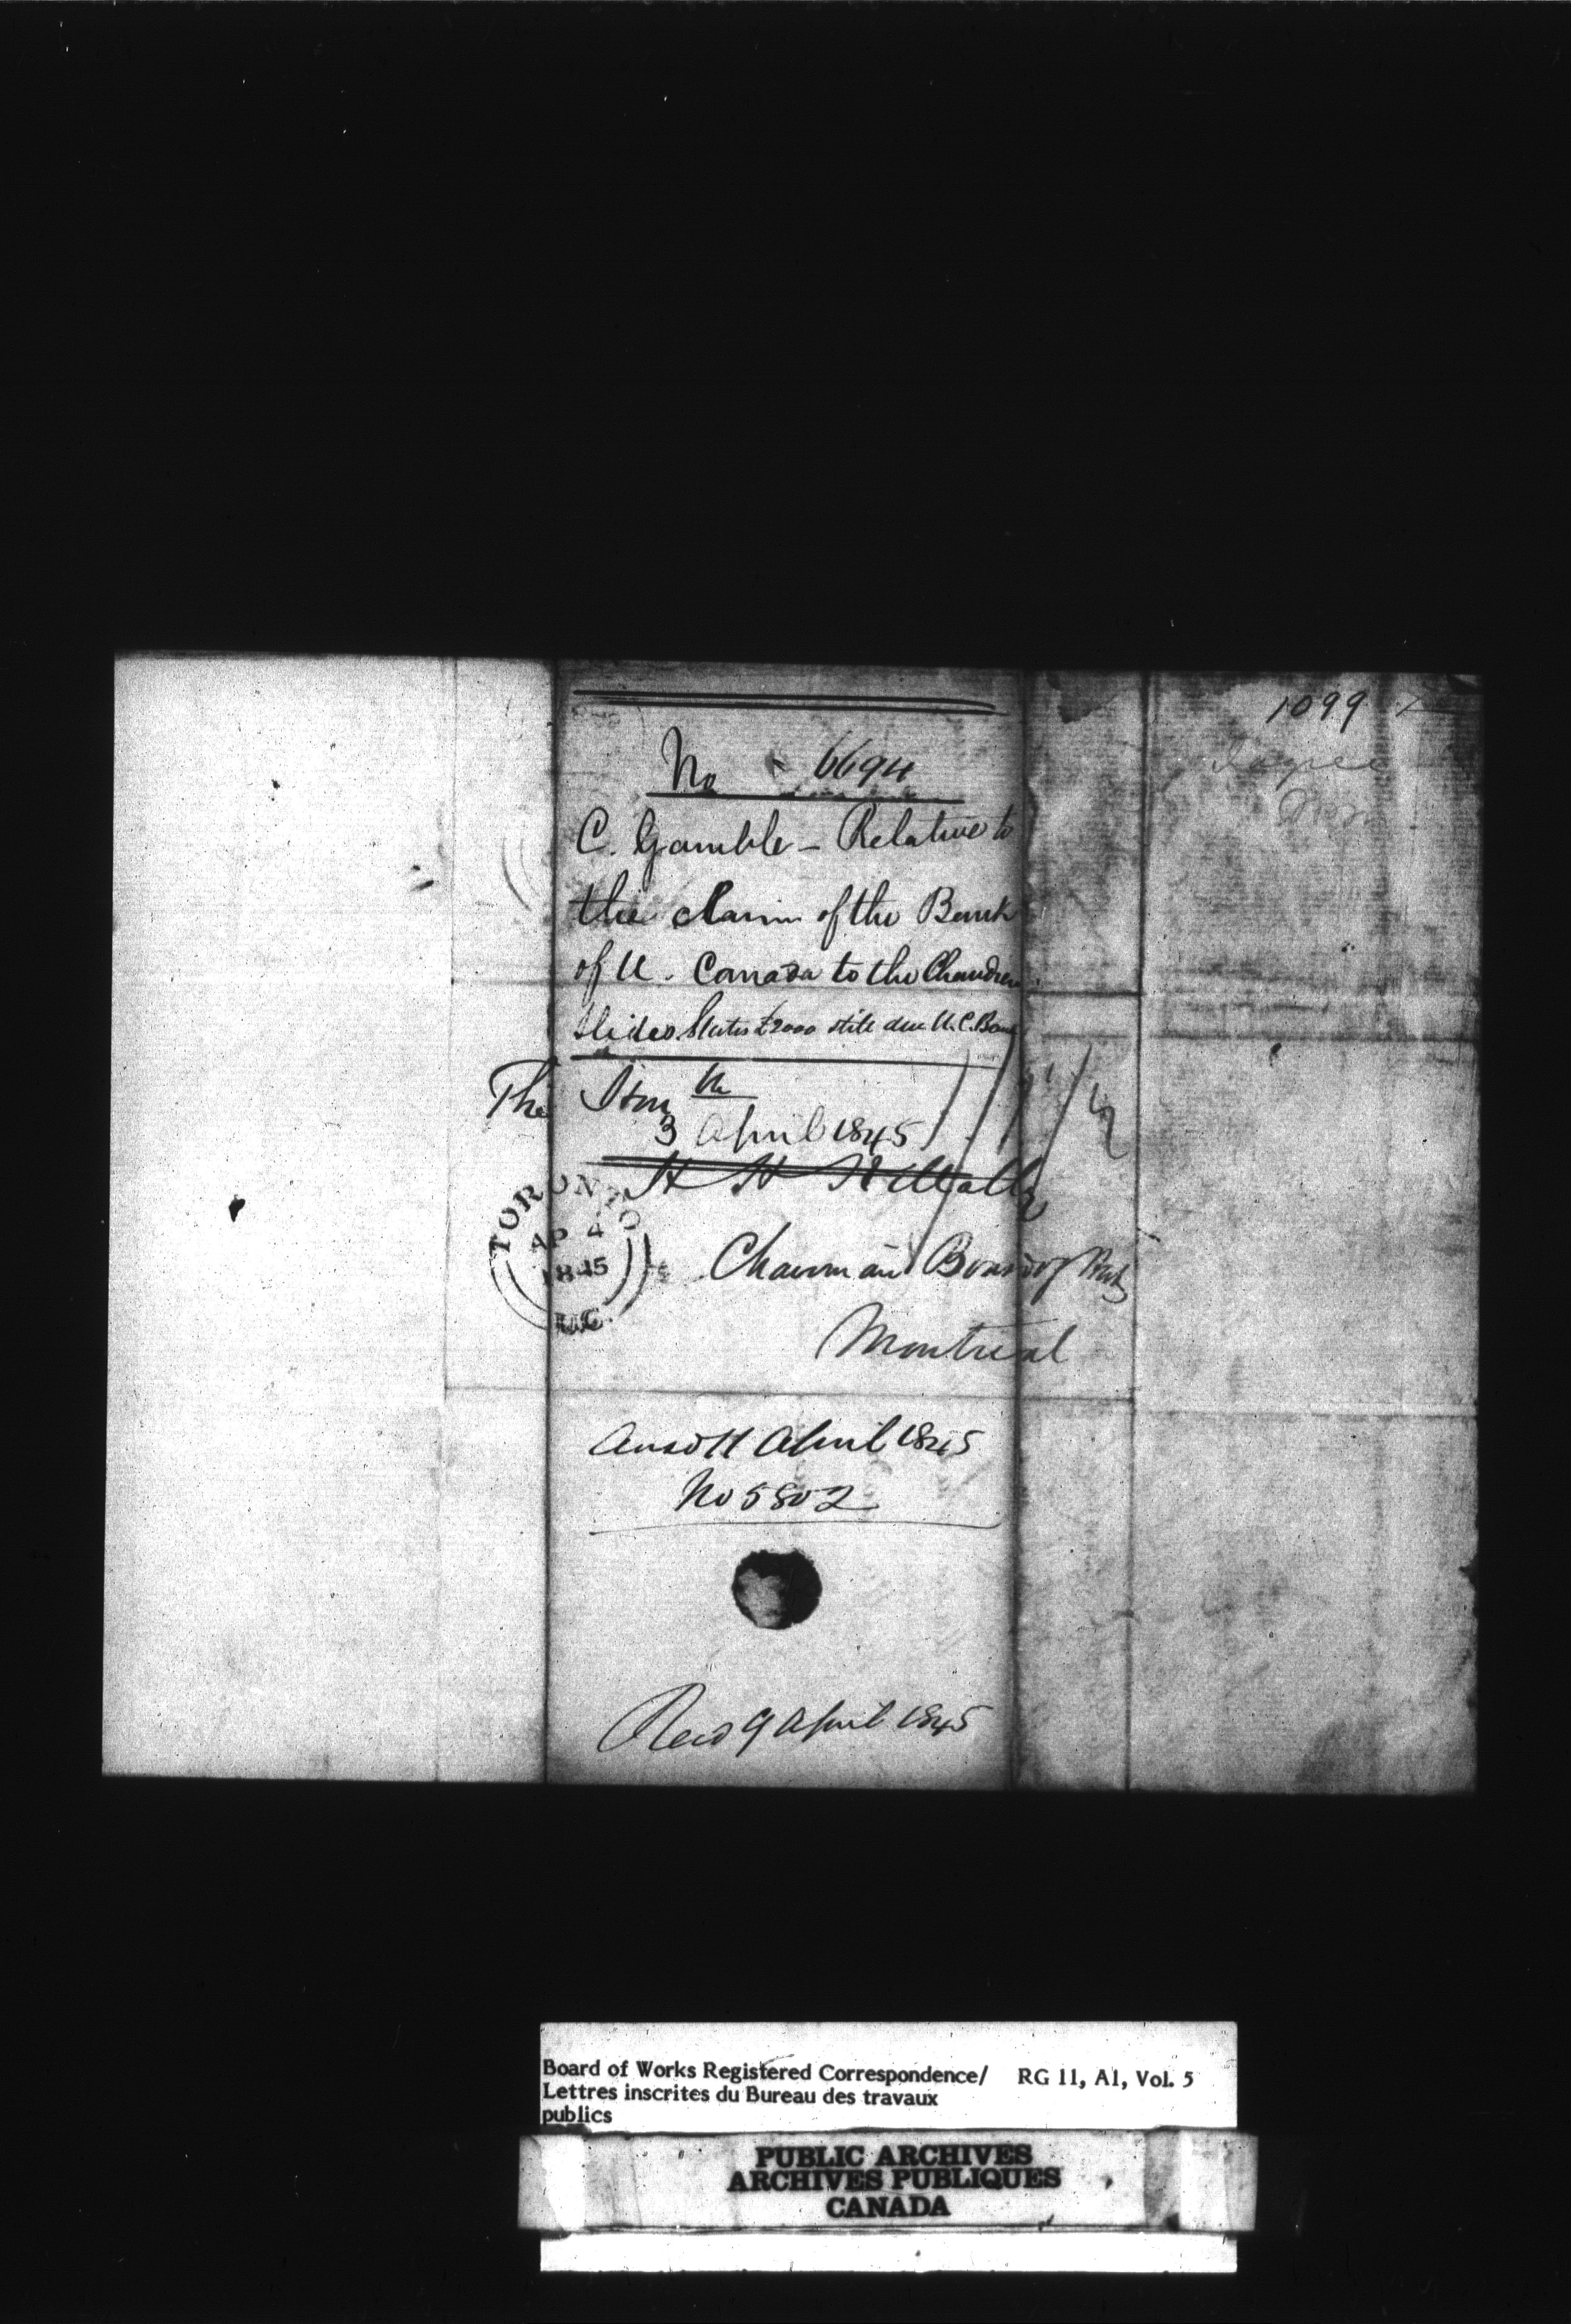 1099
No 6694
C. Gamble - Relative to
the claim of the Bank
of U. Canada to the Chaudiere
Slides. States £2000 still due U.C. Bank
The Hon ble
3 April 1845
H H Killaly
TORONTO
AP 4
1845
U.C.
Chairman Board of Works
Montreal
Ansd 11 April 1845
No 5802
Recd 9 April 1845
Board of Works Registered Correspondence/ RG 11, A1, Vol. 5
Lettres inscrites du Bureau des travaux
publics
PUBLIC ARCHIVES
ARCHIVES PUBLIQUES
CANADA